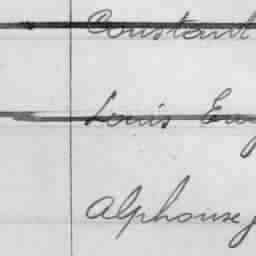 Constant
Louis Eug
Alphonse J